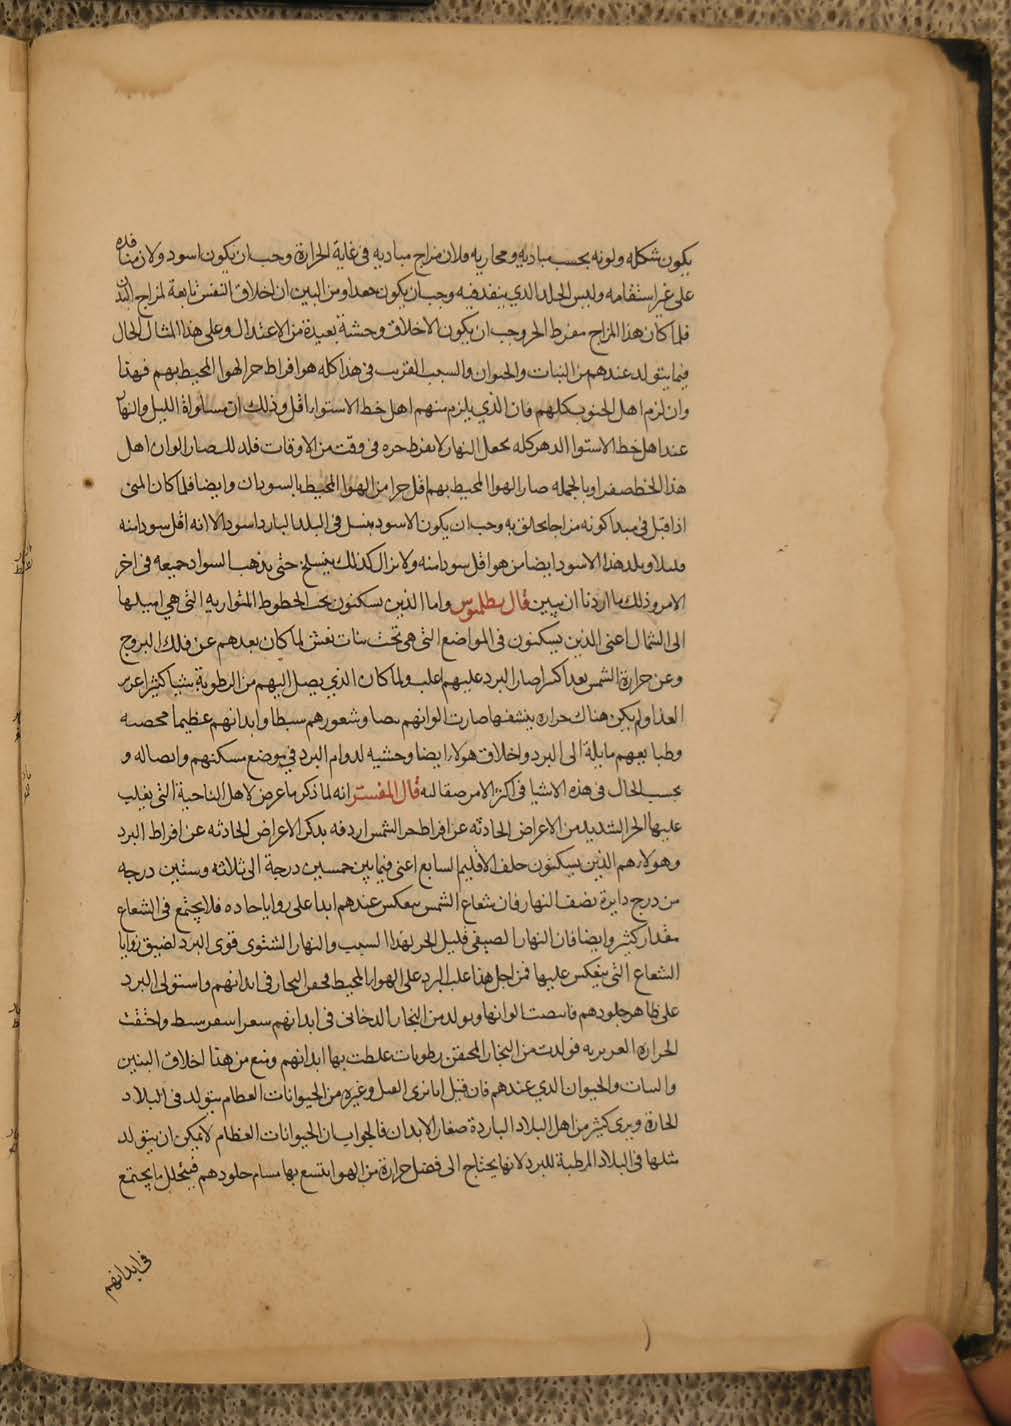 يكون شكله ولونه بحسب مباديه ومجاريه فلان مزاج مباديه فى غاية الحرارة وجب ان يكون اسود ولان منافذه
على غير استقامه وليس الجلد الذي ينفذ فيه وجب ان يكون جعدا ومن البين ان اخلاق النفس تابعة لمزاج البدن
فلما كان هذا المزاج مفرط الحر وجب ان يكون الاخلاق وحشية بعيدة من الاعتدال وعلى هذا المثال الحال
فيما يتولد عندهم من النبات والحيوان والسبب القريب فى هذا كله هو افراط حر الهوا المحيط بهم فهذا
وان لزم اهل الجنوب كلهم فان الذي يلزم منهم اهل خط الاستوا اقل وذلك ان مساواة الليل والنهار
عند اهل خط الاستوا الدهر كله يجعل النهار لا يفرط حره فى وقت من الاوقات فلذلك صار الوان اهل
هذا الخط صفرا وبالجمله صار الهوا المحيط بهم اقل حرا من الهوا المحيط بالسودان وايضا فلما كان المنى
اذا قبل فى مبدا كونه مزاجا يخلق به وجب ان يكون الاسود ينسل فى البلد البارد اسود الا انه اقل سودا منه
قليلا ويلد هذا الاسود ايضا من هو اقل سودا منه ولا يزال كذلك ينسلخ حتى يذهب السواد جميعه فى اخر
الامر وذلك ما اردنا ان نبين قال بطلميوس واما الذين يسكنون تحت الخطوط المتوازيه التى هى اميلها
الى الشمال اعنى الذين يسكنون فى المواضع التى هى تحت بنات نعش لما كان بعدهم عن فلك البروج
وعن حرارة الشمس بعدا كثيرا صار البرد عليهم اغلب ولما كان الذي يصل اليهم من الرطوبة شيا كثيرا غزير
الغذا ولم يكن هناك حرارة ينشفها صارت الوانهم بيضا وشعورهم سبطا وابدانهم عظيما مخصبه
وطبا يعهم مايلة الى البرد واخلاق هولاء ايضا وحشيه لدوام البرد فى موضع مسكنهم واتصاله و
بحسب الحال فى هذه الاشيا فى اكثر الامر صقالبه قال المفسر انه لما ذكر ما عرض لاهل الناحية التى يغلب
عليها الحر الشديد من الاعراض الحادثه عن افراط حر الشمس اردفه بذكر الاعراض الحادثه عن افراط البرد
وهولاء هم الذين يسكنون خلف الاقليم السابع اعنى فيما بين خمسين درجة الى ثلاثه وستين درجه
من درج دايرة نصف النهار فان شعاع الشمس ينعكس عندهم ابدا على زوايا حاده فلا يجتمع فى الشعاع
مقدار كثير وايضا فان النهار الصيفى قليل الحر لهذا السبب والنهار الشتوى قوى البرد لضيق زوايا
الشعاع التى ينعكس عليها فمن اجل هذا غلب البرد على الهوا المحيط فحقن البخار فى ابدانهم واستولى البرد
على ظاهر جلودهم فابيضت الوانها وتولد من البخار الدخانى فى ابدانهم شعر اشقر سبط واختفت
الحرارة الغريزيه فولدت من البخار المحتقن رطوبات غلظت بها ابدانهم وتبع من هذا اخلاق البنين
والنبات والحيوان الذي عندهم فان قيل انا نرى الفيل وغيره من الحيوانات العظام يتولد فى البلاد
الحارة ونرى كثير من اهل البلاد الباردة صغار الابدان فالجواب ان الحيوانات العظام لا يمكن ان يتولد
مثلها فى البلاد المرطبة للبرد لانها يحتاج الى فضل حرارة من الهوا يتسع بها مسام جلودهم فيتحلل ما يجتمع
فى ابدانهم